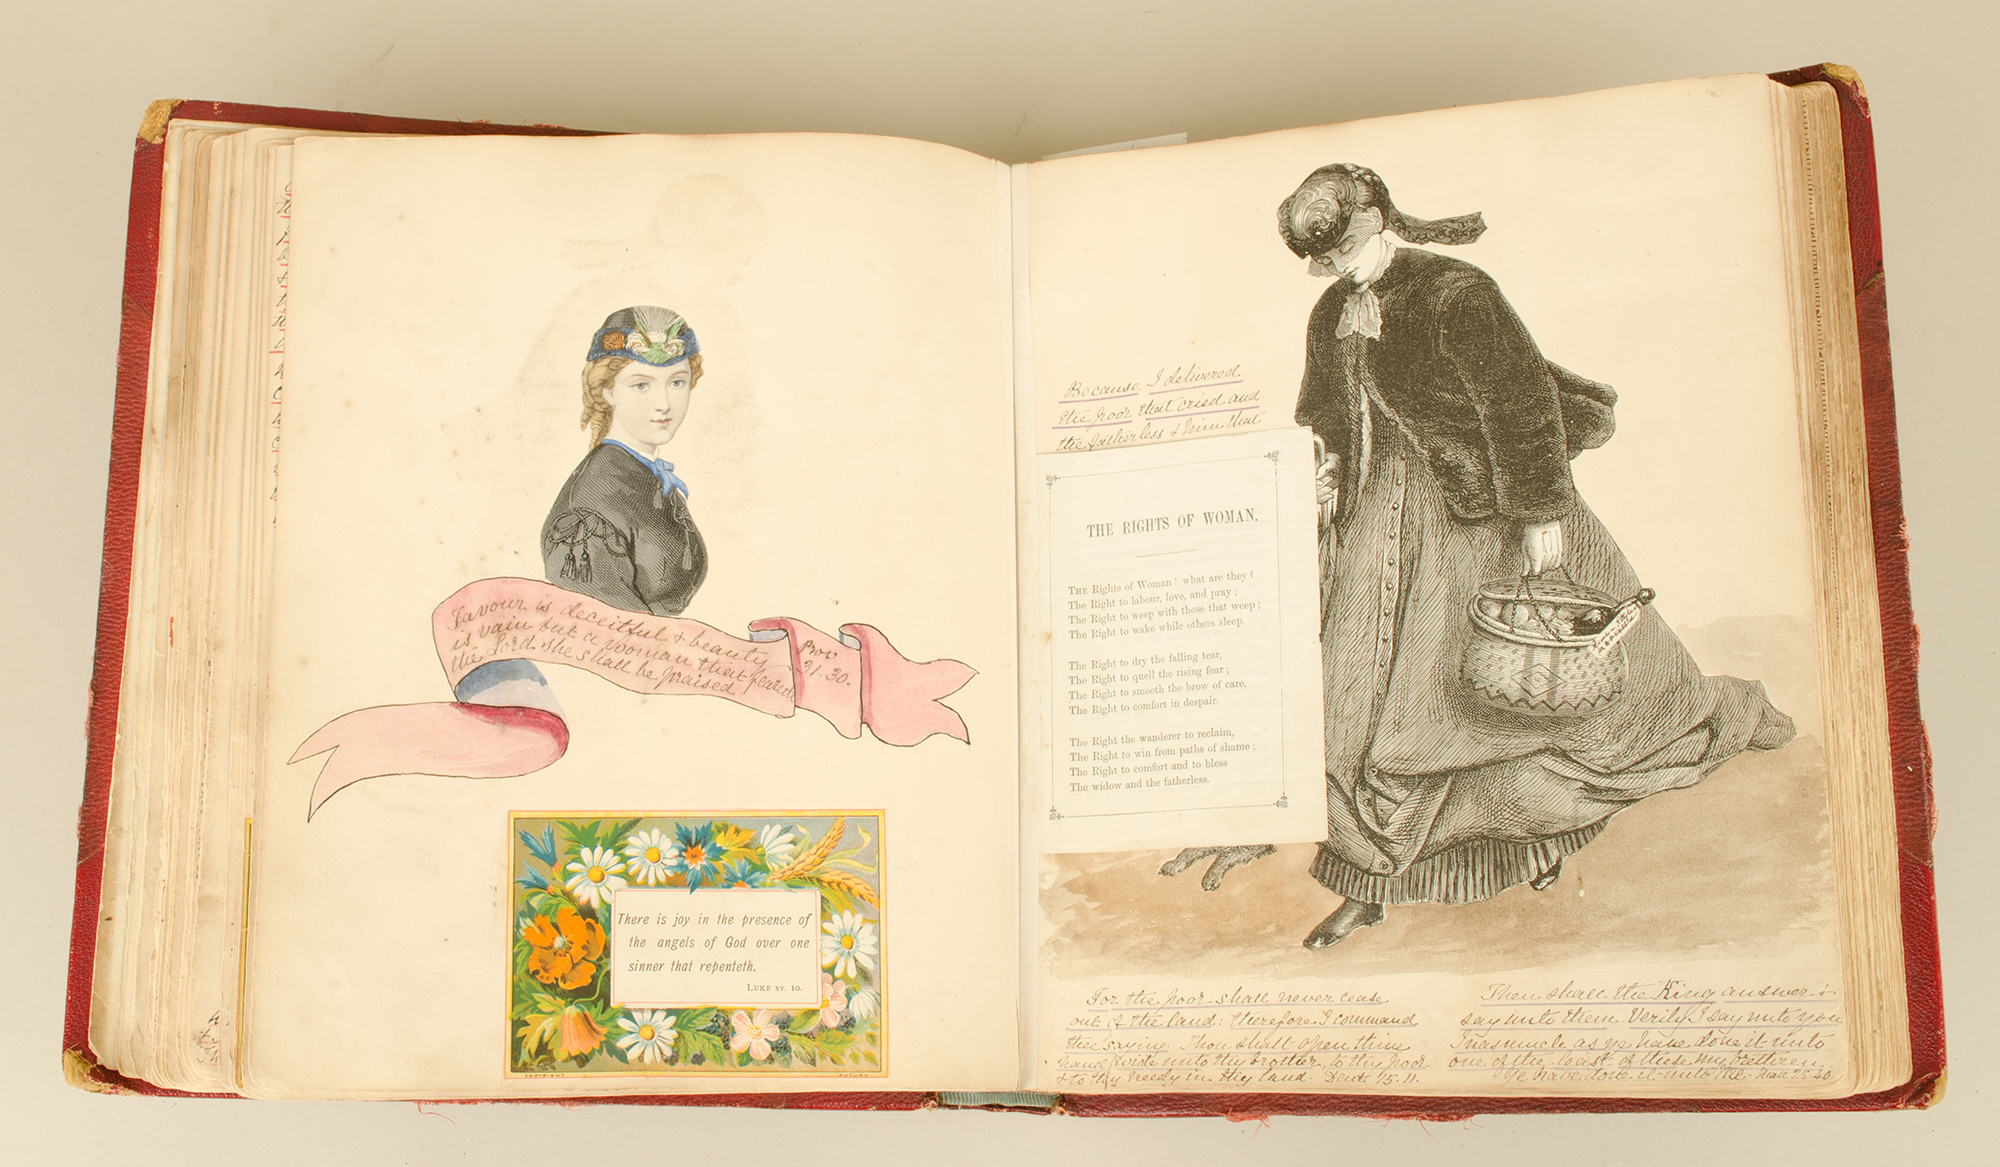 Favour is deceitful & beauty
is vain but a woman that feareth
the Lord she shall be praised
Prov
31. 30.
There is joy in the presence of
the angels of God over one
sinner that repenteth.
LUKE XV. 10.
COPYRIGHT
Because I delivered
the poor that cried and
the fatherless & him that
THE RIGHTS OF WOMAN.
THE Rights of Woman! what are they?
The Right to labour, love, and pray;
The Right to weep with those that weep;
The Right to wake while others sleep.
The Right to dry the falling tear,
The Right to quell the rising fear;
The Right to smooth the brow of care,
The Right to comfort in despair.
The Right the wanderer to reclaim,
The Right to win from paths of shame;
The Right to comfort and to bless
The widow and the fatherless.
For the poor shall never cease
out of the land: therefore I command
thee saying. Thou shalt open thine
hand wide unto thy brother, to thy poor
& to thy needy in thy land. Deut 15. 11.
Then shall the King answer &
say unto them. Verily I say unto you
Inasmuch as ye have done it unto
one of the least of these my brethren
ye have done it unto Me. Matt 25. 40